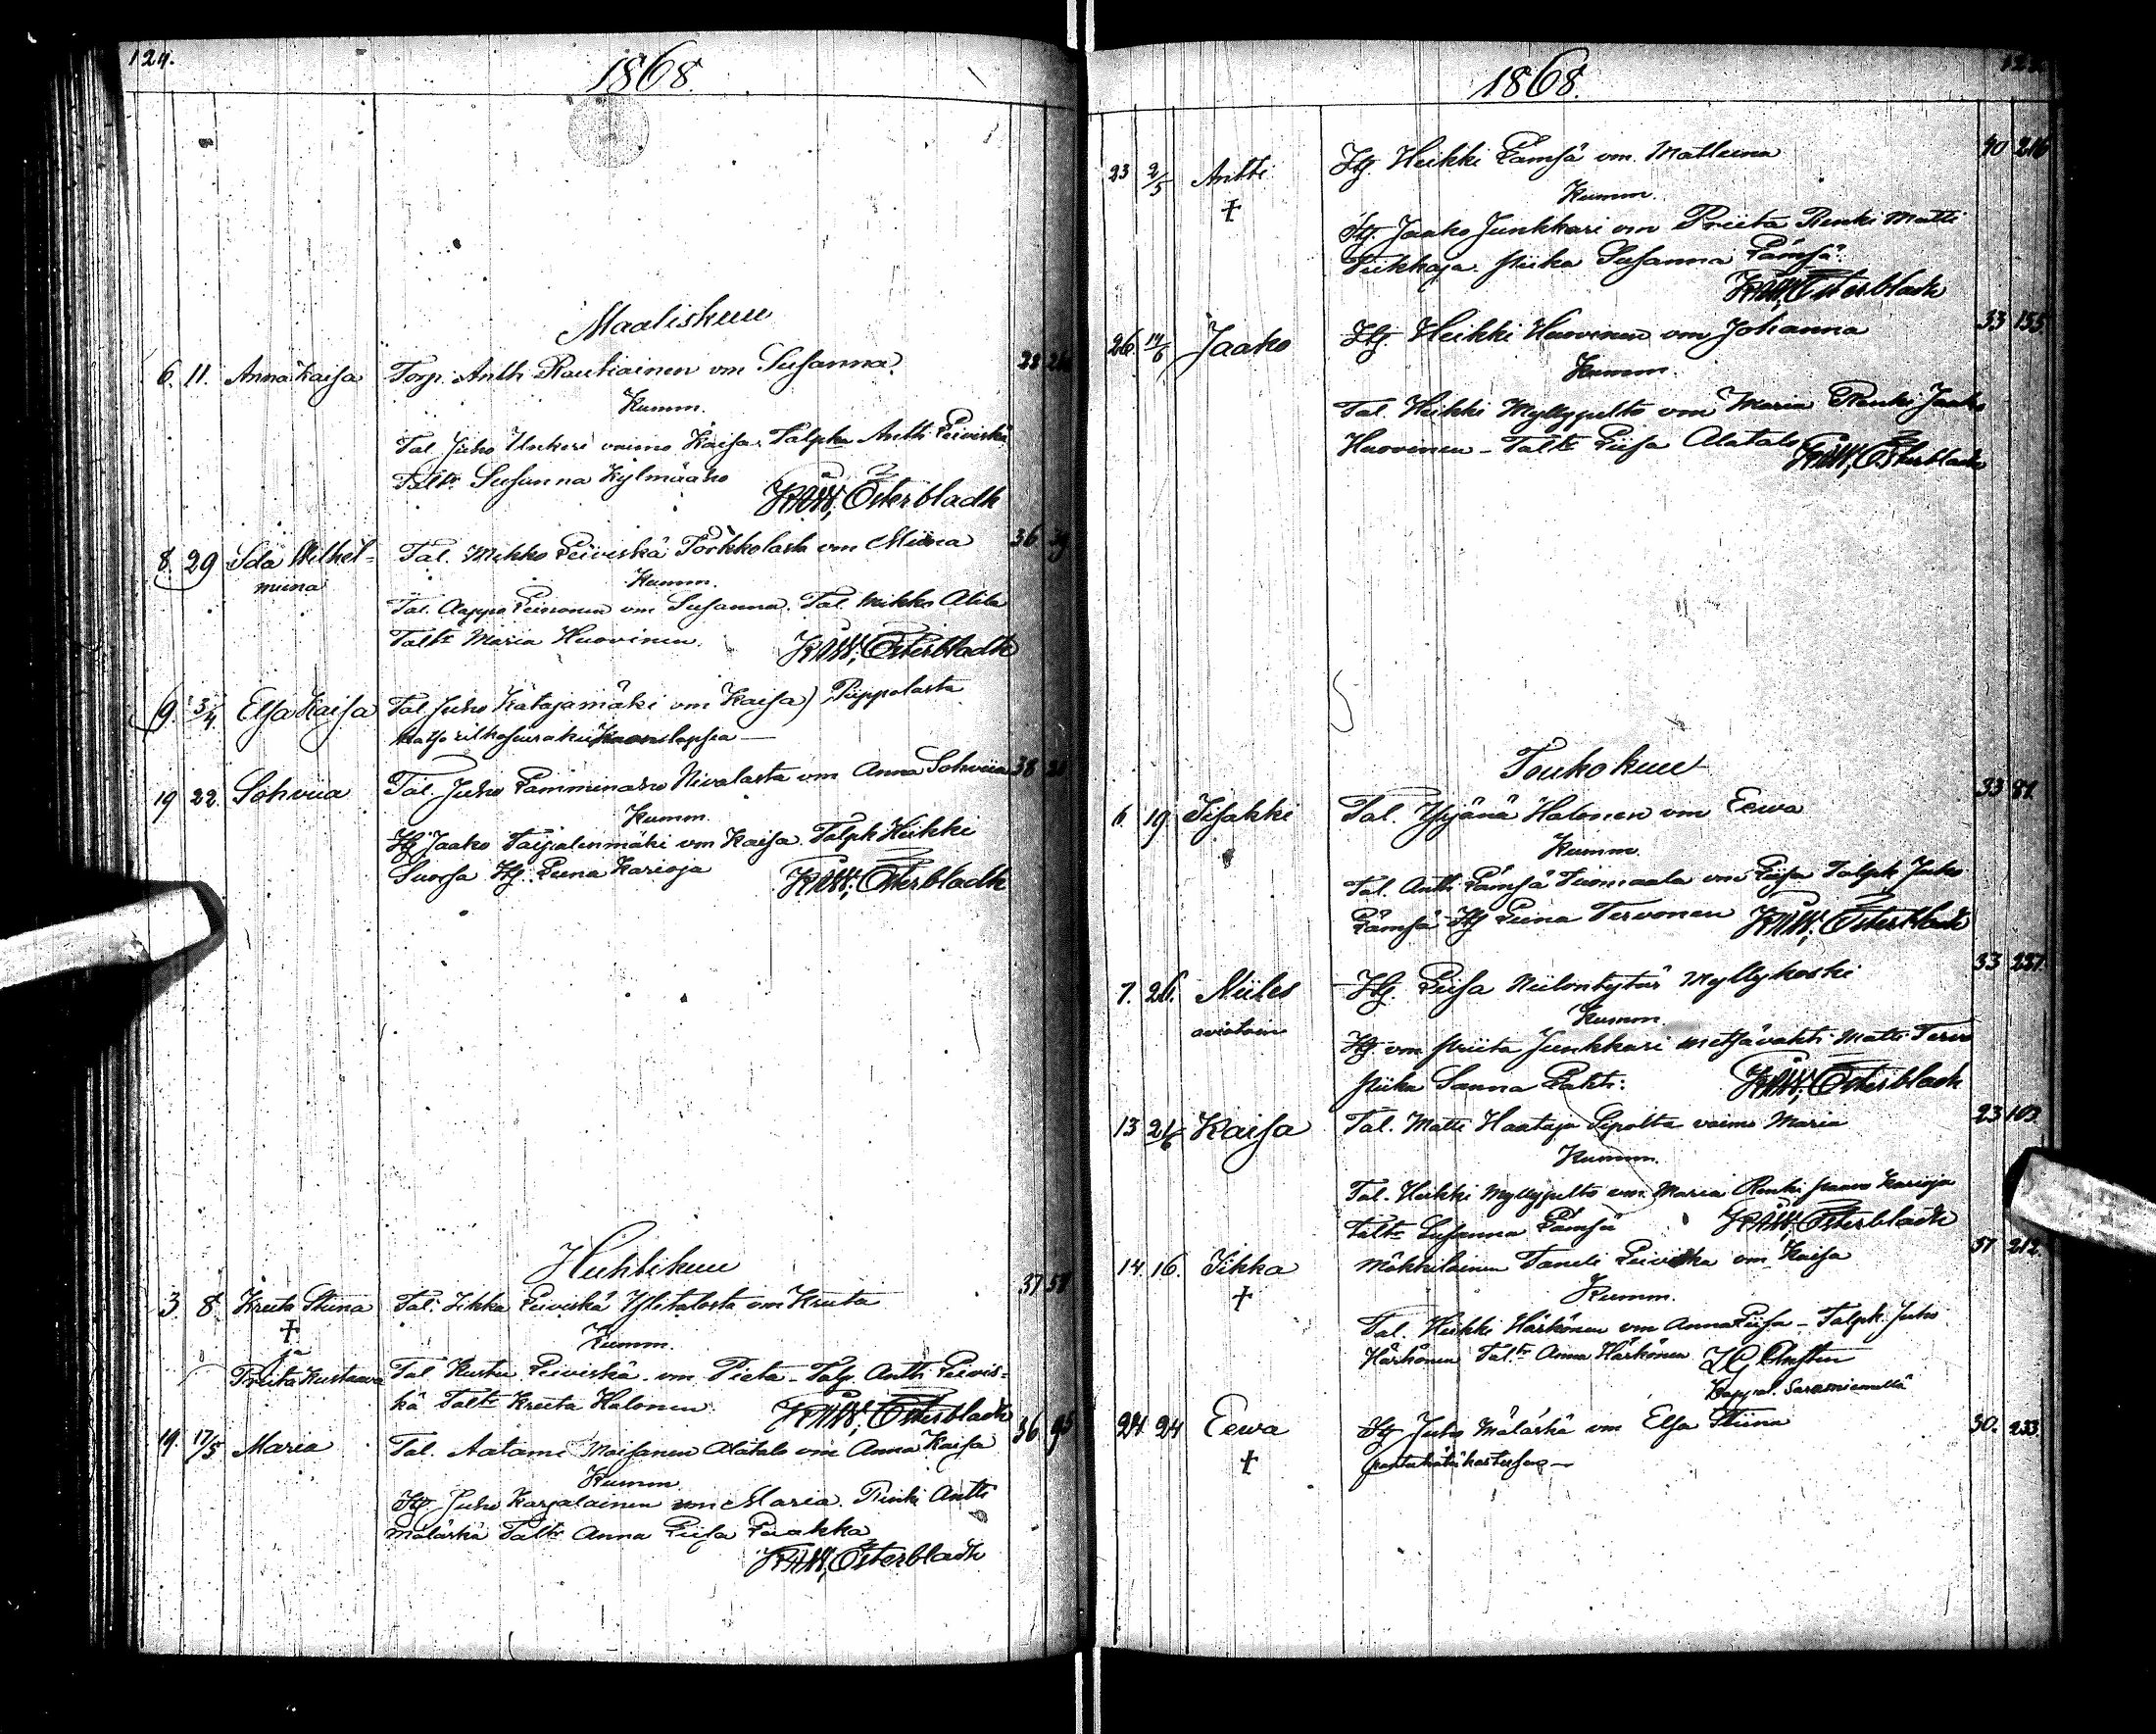 124.
1868.
Maaliskuu
6. 11. Anna Kaisa Torp. Antti Rautiainen vm Susanna 28
Kumm.
Tal. Juho Unkeri vaimo Kaisa. Talpka Antti Leiviskä
Taltr Susanna Kylmäaho Österbladh
8. 29 Ida Wilhel- Tal. Mikko Leiviskä Törkkolasta vm Miina 36 39
miina Kumm.
Tal. Aappo Leinonen vm Susanna. Tal. Mikko Alila
Taltr Maria Huovinen. Österbladh
9. 3/4. Elsa Kaisa Tal. Juho Katajamäki vm Kaisa) Piippolasta
katso
19 22. Sohviia Tal. Juho Lamminaho Nivalasta vm Anna Sohviia 38
Kumm.
Itg Jaako Taipalenmäki vm Kaisa. Talpk Heikki
Suorsa Itg. Leena Karioja Österbladh
Huhtikuu
3. 8. Kreeta Stiina Tal. Iikka Leiviskä Ylitalosta vm Kreeta 37 57
† Kumm.
ja
Priita Kustaava Tal. Kustu Leiviskä vm Pieta - Talp. Antti Leivis-
kä Taltr Kreeta Halonen. Österbladh
19. 17/5 Maria Tal. Aatami Moisanen Alatalo vm Anna Kaisa 36 95
Kumm
Itg. Juho Karjalainen vm Maria. Renki Antti
Määrkä Taltr Anna Liisa Luakka
Österbladh
1868.
23 2/5 Antti Itg. Heikki Lämsä vm. Malleena 40 216
† Kumm.
Itg. Jaako Junkkari vm Priita Renki Matti
Tiikkaja. piika Susanna Lämsä.
Österbladh
26. 14/6 Jaako Itg. Heikki Huovinen vm Johanna 33 155.
Kumm.
Tal. Heikki Myllypelto vm Maria Renki Jaako
Huovinen - Taltr Liisa Alatalo Österbladh
Toukokuu
6. 19. Iisakki Tal. Yrjänä Halonen vm Eewa 33 81.
Kumm.
Tal. Antti Lämsä Tuomaala vm Liisa Talpk Juho
Lämsä Itg Leena Tervonen Österbladh
7. 26. Niiles Itg. Liisa Niilontytär Myllykoski 33 237.
aviotoin Kumm.
Itg. vm Priita Junkkari metsävahti Matti Tervo
piika Sanna Lahti. Österbladh
13 21/6 Kaisa Tal. Matti Haataja Sipolta vaimo Maria 23 103.
Kumm.
Tal. Heikki Myllypelto vm. Maria Renki paavo Karioja
Taltr Susanna Lämsä Österbladh
14. 16. Iikka Mökkiläinen Taneli Leiviskä vm. Kaisa 37 212.
† Kumm.
Tal. Heikki Härkönen vm Anna Liisa - Talpk. Juho
Härkönen Taltr Anna Härkönen
Kappal. Säräisniemellä
24. 24 Eewa Itg Juho Määrkä vm Elsa Stiina 30. 233.
†